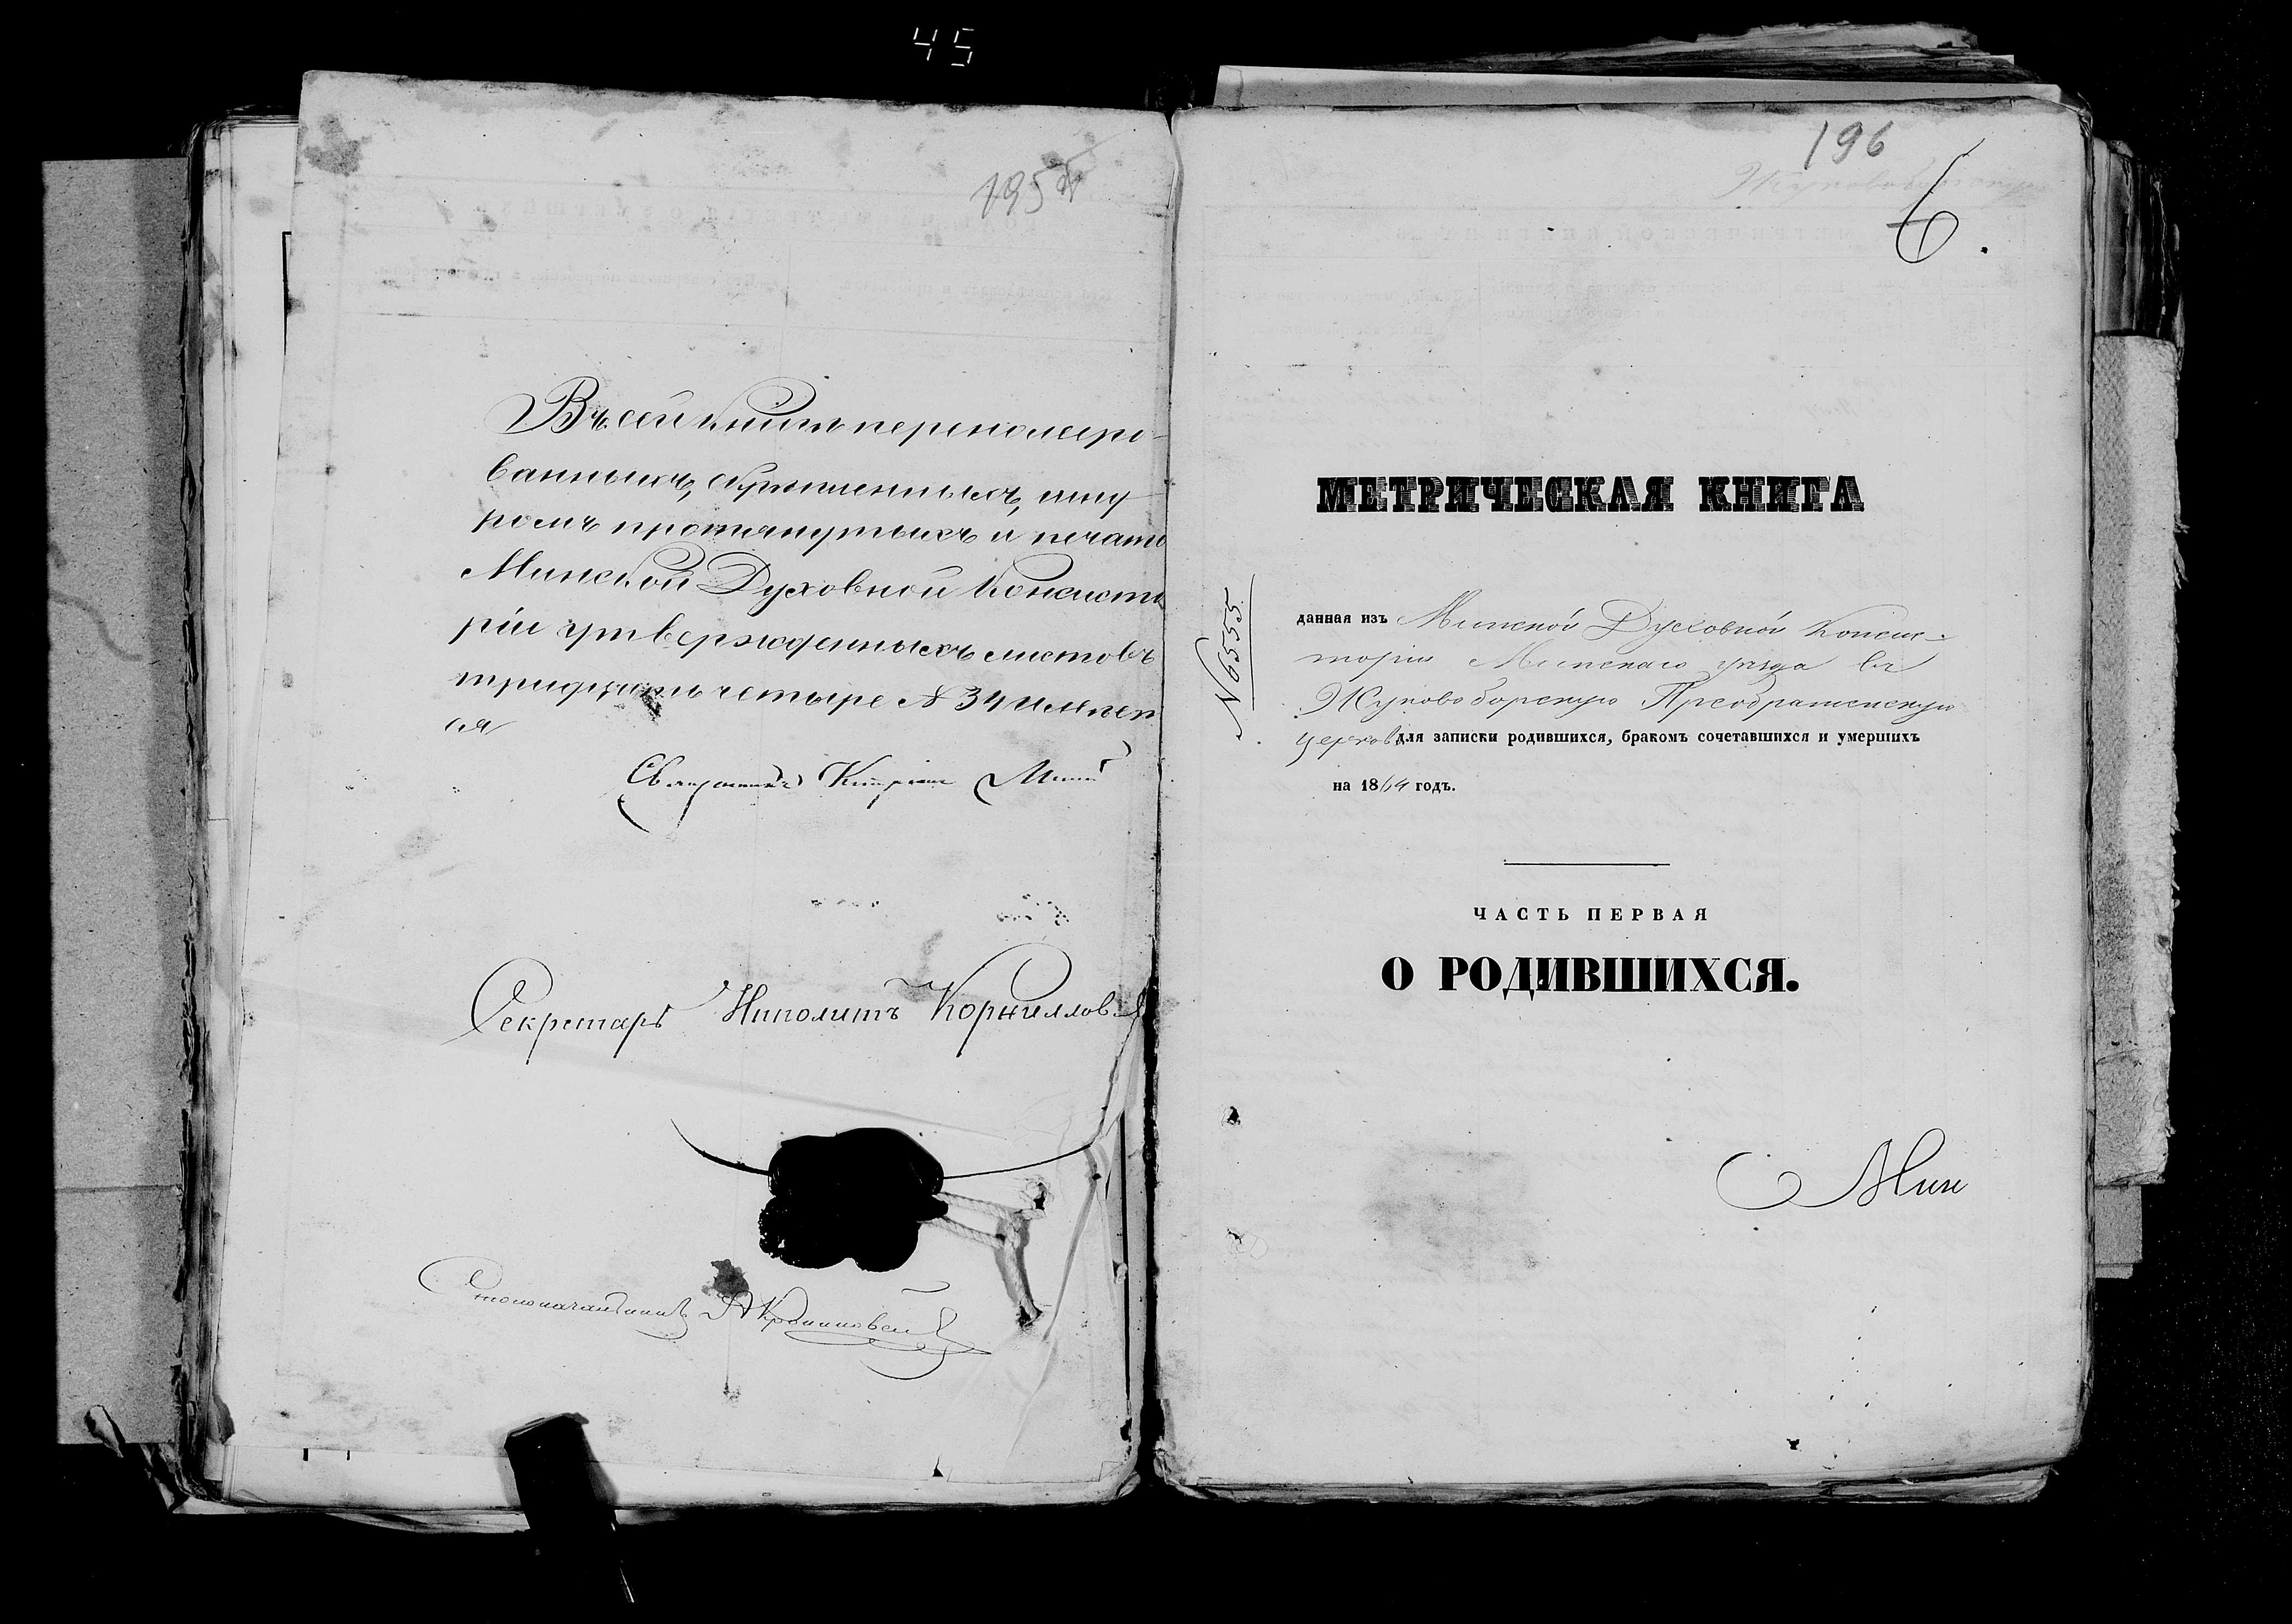 45
195
Въ сей книгѣ перенумеро-
ванныхъ, скрѣпленныхъ, шну
ромъ протянутыхъ и печатью
Минской Духовной Консисто
ріи утвержденныхъ листовъ
тридцать четыре № 34 имѣет
ся
Священникъ
Секретарь Иполитъ Корниллов
Столоначальникъ
196
6.
МЕТРИЧЕСКАЯ КНИГА
№ 6555
данная изъ Минской Духовной Консис-
торіи Минскаго уѣзда въ
Жуковоборскую Преображенскую
церковь для записки родившихся, бракомъ сочетавшихся и умершихъ
на 1864 годъ.
ЧАСТЬ ПЕРВАЯ
О РОДИВШИХСЯ.
Мин